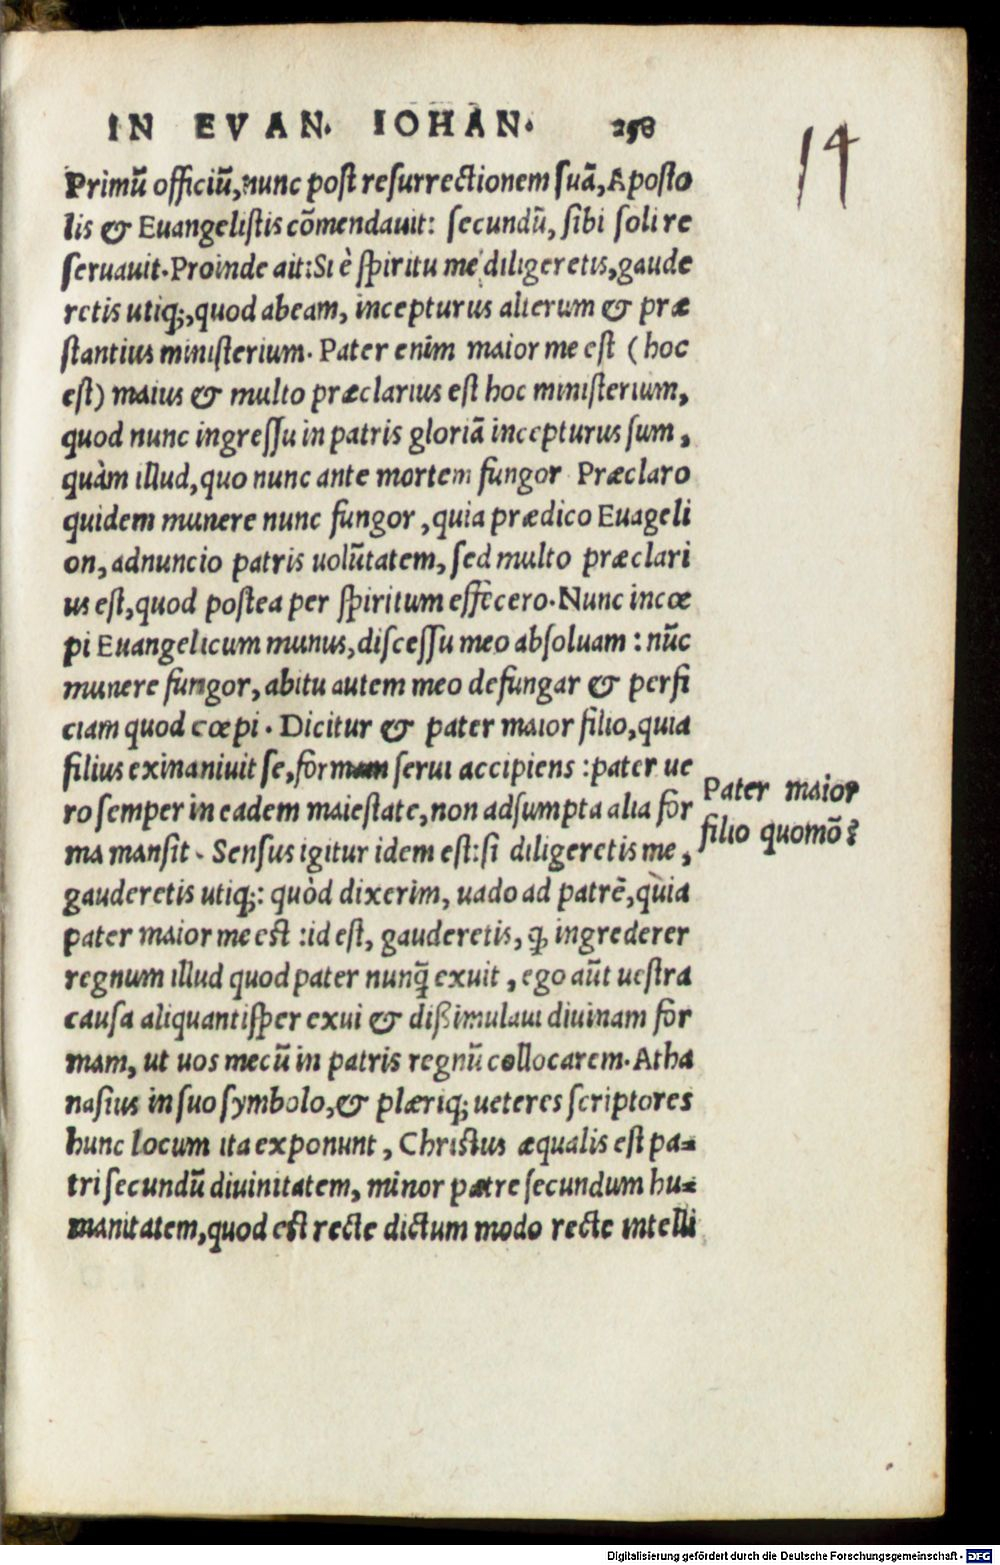 IN EVAN. IOHAN. 258
14
Primū officiū, nunc post resurrectionem suā, Aposto
lis & Euangelistis cōmendauit: secundū, sibi soli re
seruauit. Proinde ait: Si è spiritu me diligeretis, gaude
retis utiq;, quod abeam, incepturus alterum & præ
stantius ministerium. Pater enim maior me est (hoc
est) maius & multo præclarius est hoc ministerium,
quod nunc ingressu in patris gloriā incepturus sum,
quàm illud, quo nunc ante mortem fungor Præclaro
quidem munere nunc fungor, quia prædico Euageli
on, adnuncio patris uolūtatem, sed multo præclari
us est, quod postea per spiritum effecero. Nunc incœ
pi Euangelicum munus, discessu meo absoluam: nūc
munere fungor, abitu autem meo defungar & perfi
ciam quod cœpi. Dicitur & pater maior filio, quia
filius exinaniuit se, formam serui accipiens: pater ue
ro semper in eadem maiestate, non adsumpta alia for
ma mansit. Sensus igitur idem est: si diligeretis me,
gauderetis utiq;: quòd dixerim, uado ad patrē, quia
pater maior me est: id est, gauderetis, ꝙ ingrederer
regnum illud quod pater nunꝗ̄ exuit, ego aūt uestra
causa aliquantisper exui & dißimulaui diuinam for
mam, ut uos mecū in patris regnū collocarem. Atha
nasius in suo symbolo, & plæriq; ueteres scriptores
hunc locum ita exponunt, Christus æqualis est pa-
tri secundū diuinitatem, minor patre secundum hu-
manitatem, quod est recte dictum modo recte intelli
Pater maior
filio quomō?
Digitalisierung gefördert durch die Deutsche Forschungsgemeinschaft - DFG